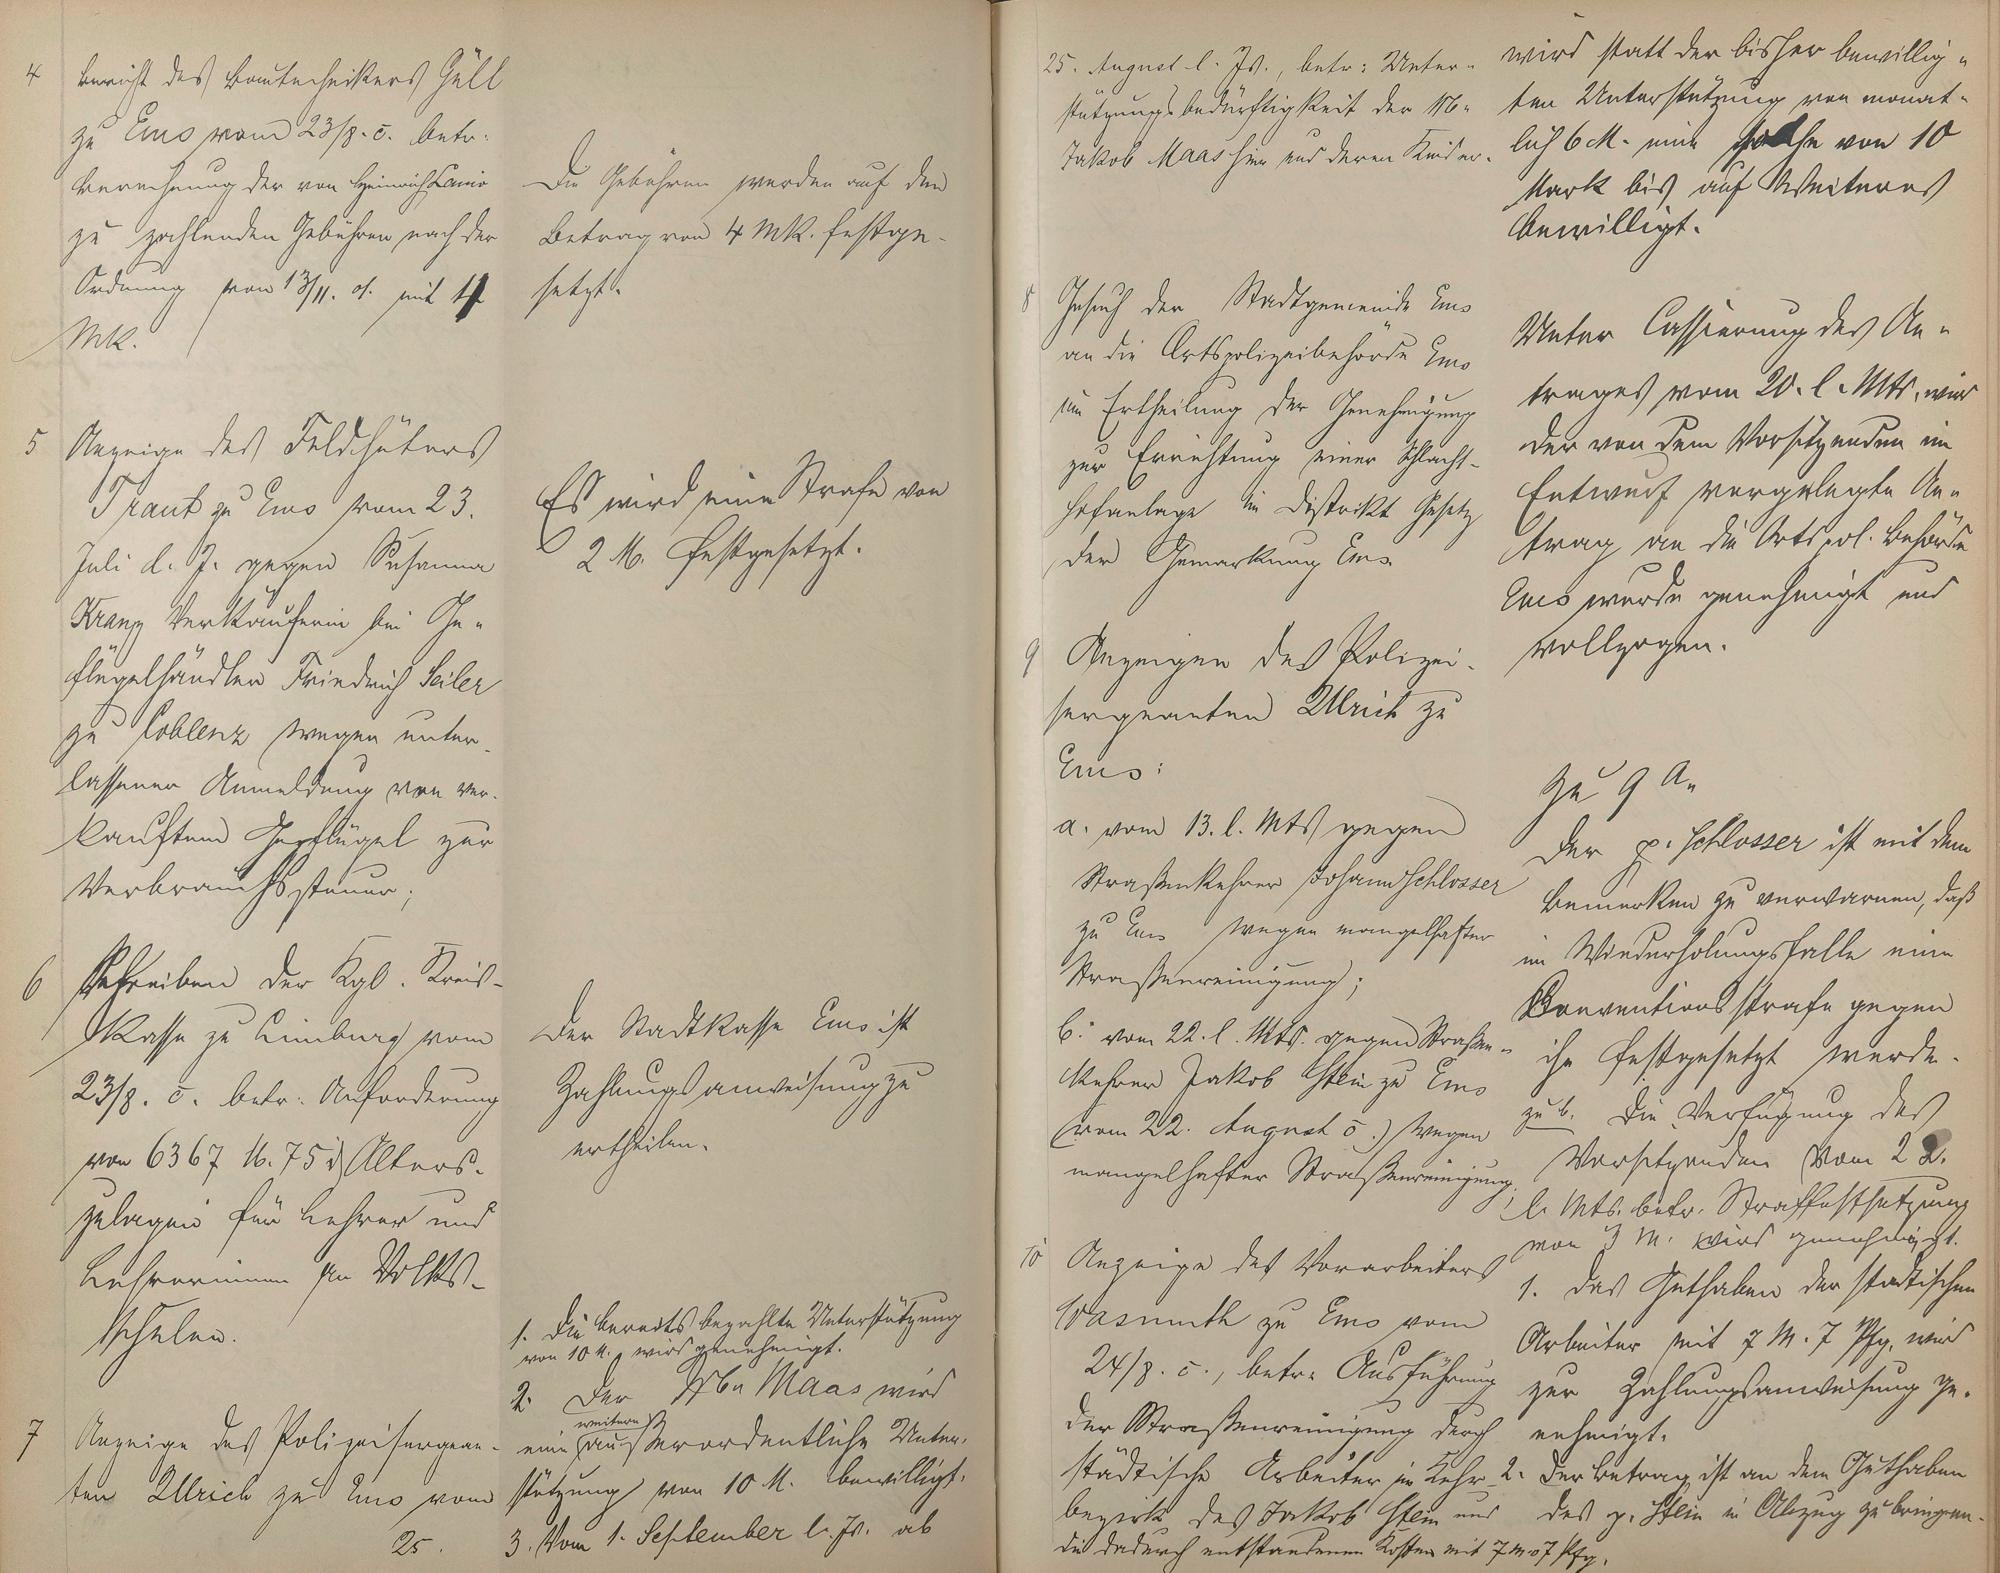 4 Bericht des Bautechnikers Güll
zu Ems vom 23/8. c. betr.
Berechnung der von Heinrich
zu zahlenden Gebühren nach der
Ordnung vom 13/11. 01. mit 4
Mk.
Die Gebühren werden auf den
Betrag von 4 Mk. festge-
setzt.
5 Anzeige des Feldhüters
Traut zu Ems vom 23.
Juli d. J. gegen Susanna
Kranz Verkäuferin bei Ge-
flügelhändler Friedrich Seiler
zu Coblenz wegen unter-
lassener Anmeldung von ver-
kauftem Geflügel zur
Verbrauchssteuer;
Es wird eine Strafe von
2 M. festgesetzt.
6 Schreiben der Kgl. Kreis-
kasse zu Limburg vom
23/8. c. betr. Anforderung
von 6367 M. 75 d Alters-
zulagen für Lehrer und
Lehrerinnen an Volks-
schulen.
Der Stadtkasse Ems ist
Zahlungsanweisung zu
ertheilen.
7 Anzeige des Polizeisergean-
ten Ulrich zu Ems vom
25.
1. Die bereits bezahlte Unterstützung
von 10 M. wird genehmigt.
2. Der Wbe Maas wird
eine weitere außerordentliche Unter-
stützung von 10 M. bewilligt.
3. Vom 1. September l. Js. ab
25. August l. Js., betr: Unter-
stützungsbedürftigkeit der Wbe
Jakob Maas hier und deren Kinder.
wird statt der bisher bewillig-
ten Unterstützung von monat-
lich 6 M. eine solche von 10
Mark bis auf Weiteres
bewilligt.
8 Gesuch der Stadtgemeinde Ems
an die Ortspolizeibehörde Ems
um Ertheilung der Genehmigung
zur Errichtung einer Schlacht-
hofanlage im Distrikt Gesetz
der Gemarkung Ems.
Unter Cassierung des An-
trages vom 20. l. Mts. wird
der von dem Vorsitzenden im
Entwurf vorgelegte An-
trag an die Ortspol. Behörde
Ems wurde genehmigt und
vollzogen.
9 Anzeigen des Polizei-
sergeanten Ulrich zu
Ems:
a. vom 13. l. Mts gegen
Straßenkehrer Johann Schlosser
zu Ems wegen mangelhafter
Straßenreinigung;
b. vom 22. l. Mts. gegen Straßen-
kehrer Jakob Stein zu Ems
(vom 22. August c.) wegen
mangelhafter Straßenreinigung;
Zu 9 a.
Der p. Schlosser ist mit dem
Bemerken zu verwarnen, daß
im Wiederholungsfalle eine
Conventionsstrafe gegen
ihn festgesetzt werde.
zu b. Die Verfügung des
Vorsitzenden vom 22.
l. Mts. betr. Straffestsetzung
von 3 M. wird genehmigt.
10 Anzeige des Vorarbeiters
Wasmuth zu Ems vom
24/8. c., betr. Ausführung
der Straßenreinigung durch
städtische Arbeiter im Kehr-
bezirk des Jakob Stein und
die dadurch entstandenen Kosten mit 7 M 07 Pfg.
1. Das Guthaben der städtischen
Arbeiter mit 7 M. 7 Pfg. wird
zur Zahlungsanweisung ge-
nehmigt.
2. Der Betrag ist an dem Guthaben
des p. Stein in Abzug zu bringen.